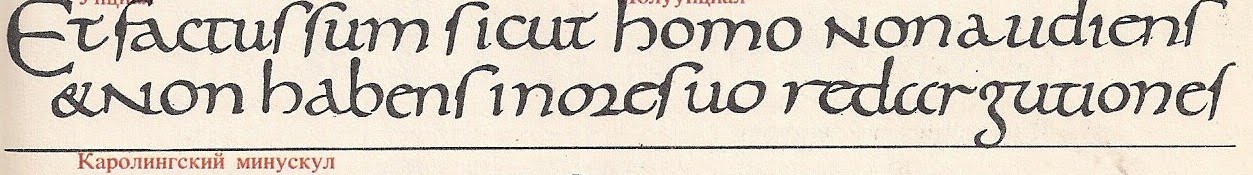 Унциал Полуунциал
Et factus sum sicut homo non audiens
& non habens in ore suo redarguтiones
Каролингский минускул